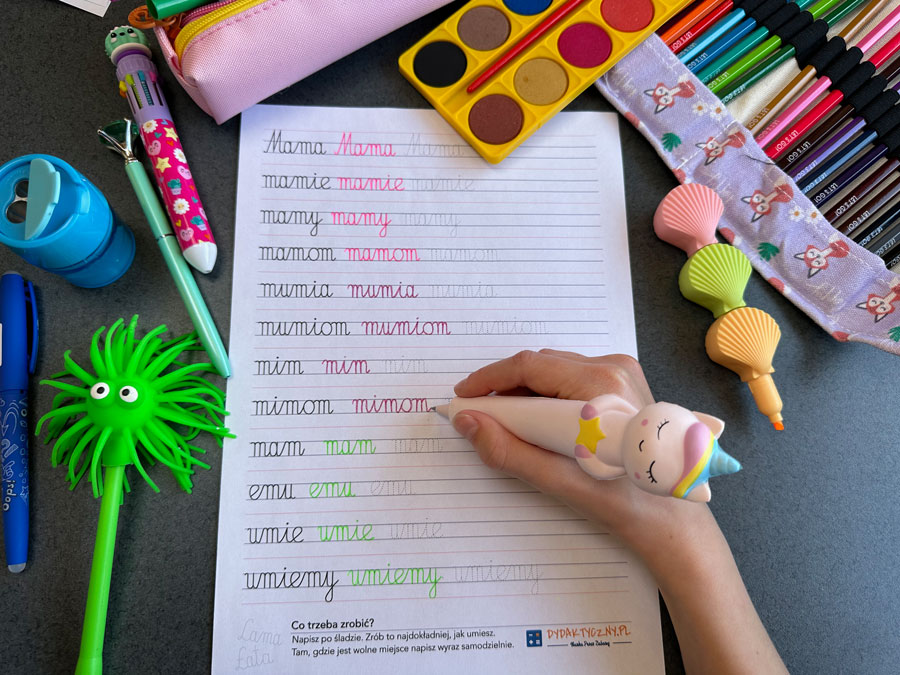 Mama Mama Mama
mamie mamie mamie
mamy mamy mamy
mamom mamom mamom
mumia mumia mumia
mumiom mumiom mumiom
mim mim mim
mimom mimom
mam mam mam
emu emu emu
umie umie umie
umiemy umiemy umiemy
Lama
Łata
Co trzeba zrobić?
Napisz po śladzie. Zrób to najdokładniej, jak umiesz.
Tam, gdzie jest wolne miejsce napisz wyraz samodzielnie.
DYDAKTYCZNY.PL
Nauka Przez Zabawę
LET'S GO!
LET'S GO!
LET'S GO!
LET'S GO!
LET'S GO!
LET'S GO!